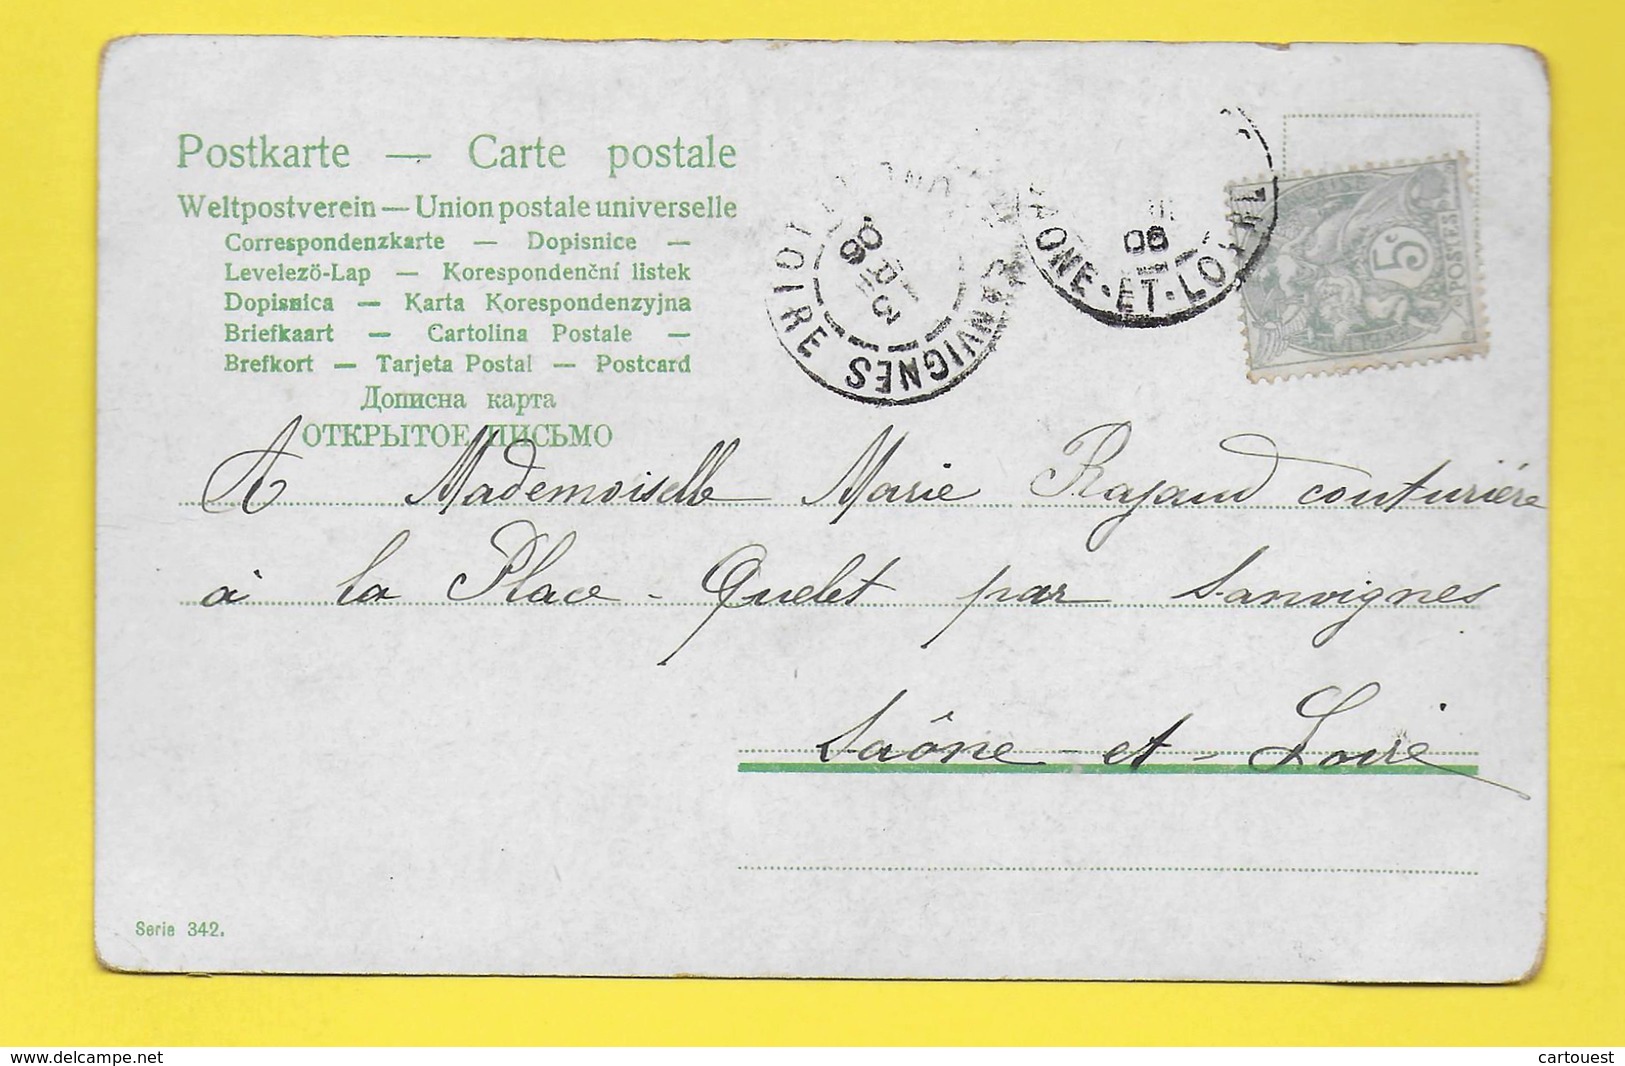 Postkarte — Carte postale
Weltpostverein — Union postale universelle
Correspondenzkarte — Dopisnice —
Levelezö-Lap — Korespondenční listek
Dopisnica — Karta Korespondenzyjna
Briefkaart — Cartolina Postale —
Brefkort — Tarjeta Postal — Postcard
Дописна карта
ОТКРЫТОЕ ПИСЬМО
SANVIGNES
LOIRE
06
SAONE-ET-LOIRE
06
5c
POSTES
A Mademoiselle Marie Rajaud couturière
à la Place - Quelet par Sanvignes
Saône - et - Loire
Serie 342.
www.delcampe.net
cartouest